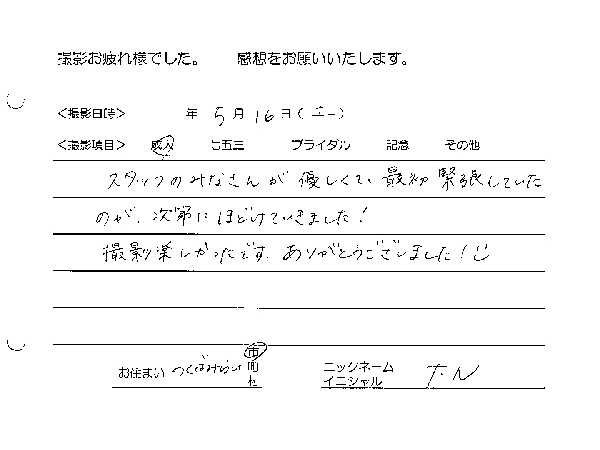 撮影お疲れ様でした。 感想をお願いいたします。
<撮影日時> 年 5月 16日(土)
<撮影項目> 成人 七五三 ブライダル 記念 その他
スタッフのみなさんが優しくて、最初緊張していた
のが、次第にほどけていきました!
撮影楽しかったです。ありがとうございました!
お住まい つくばみらい 市 町 村
ニックネーム
イニシャル T.N